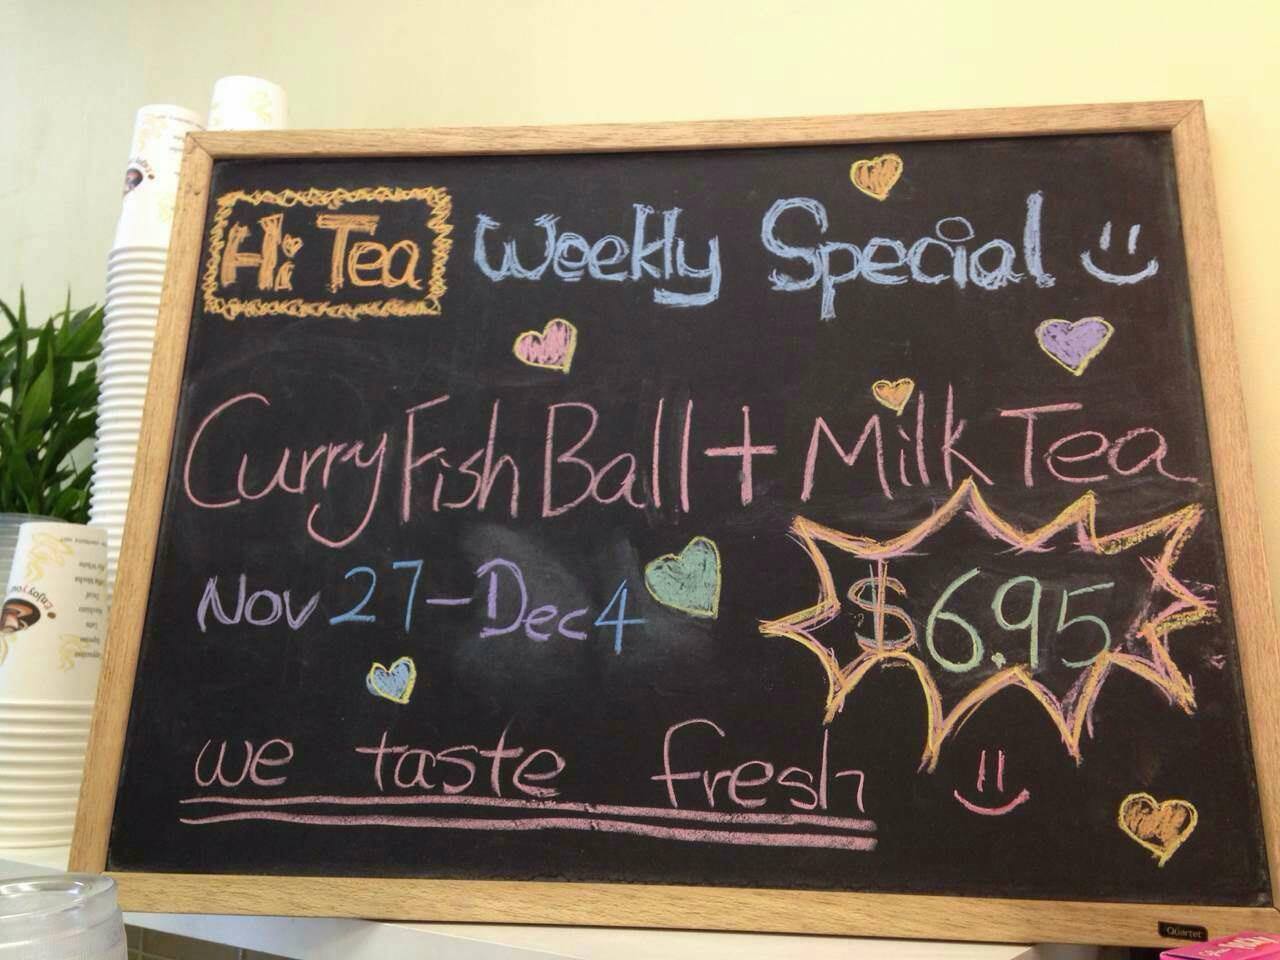 Hi Tea Weekly Special
Curry Fish Ball + Milk Tea
Nov 27 - Dec 4
$6.95
we taste fresh
Enjoy you
Quartet